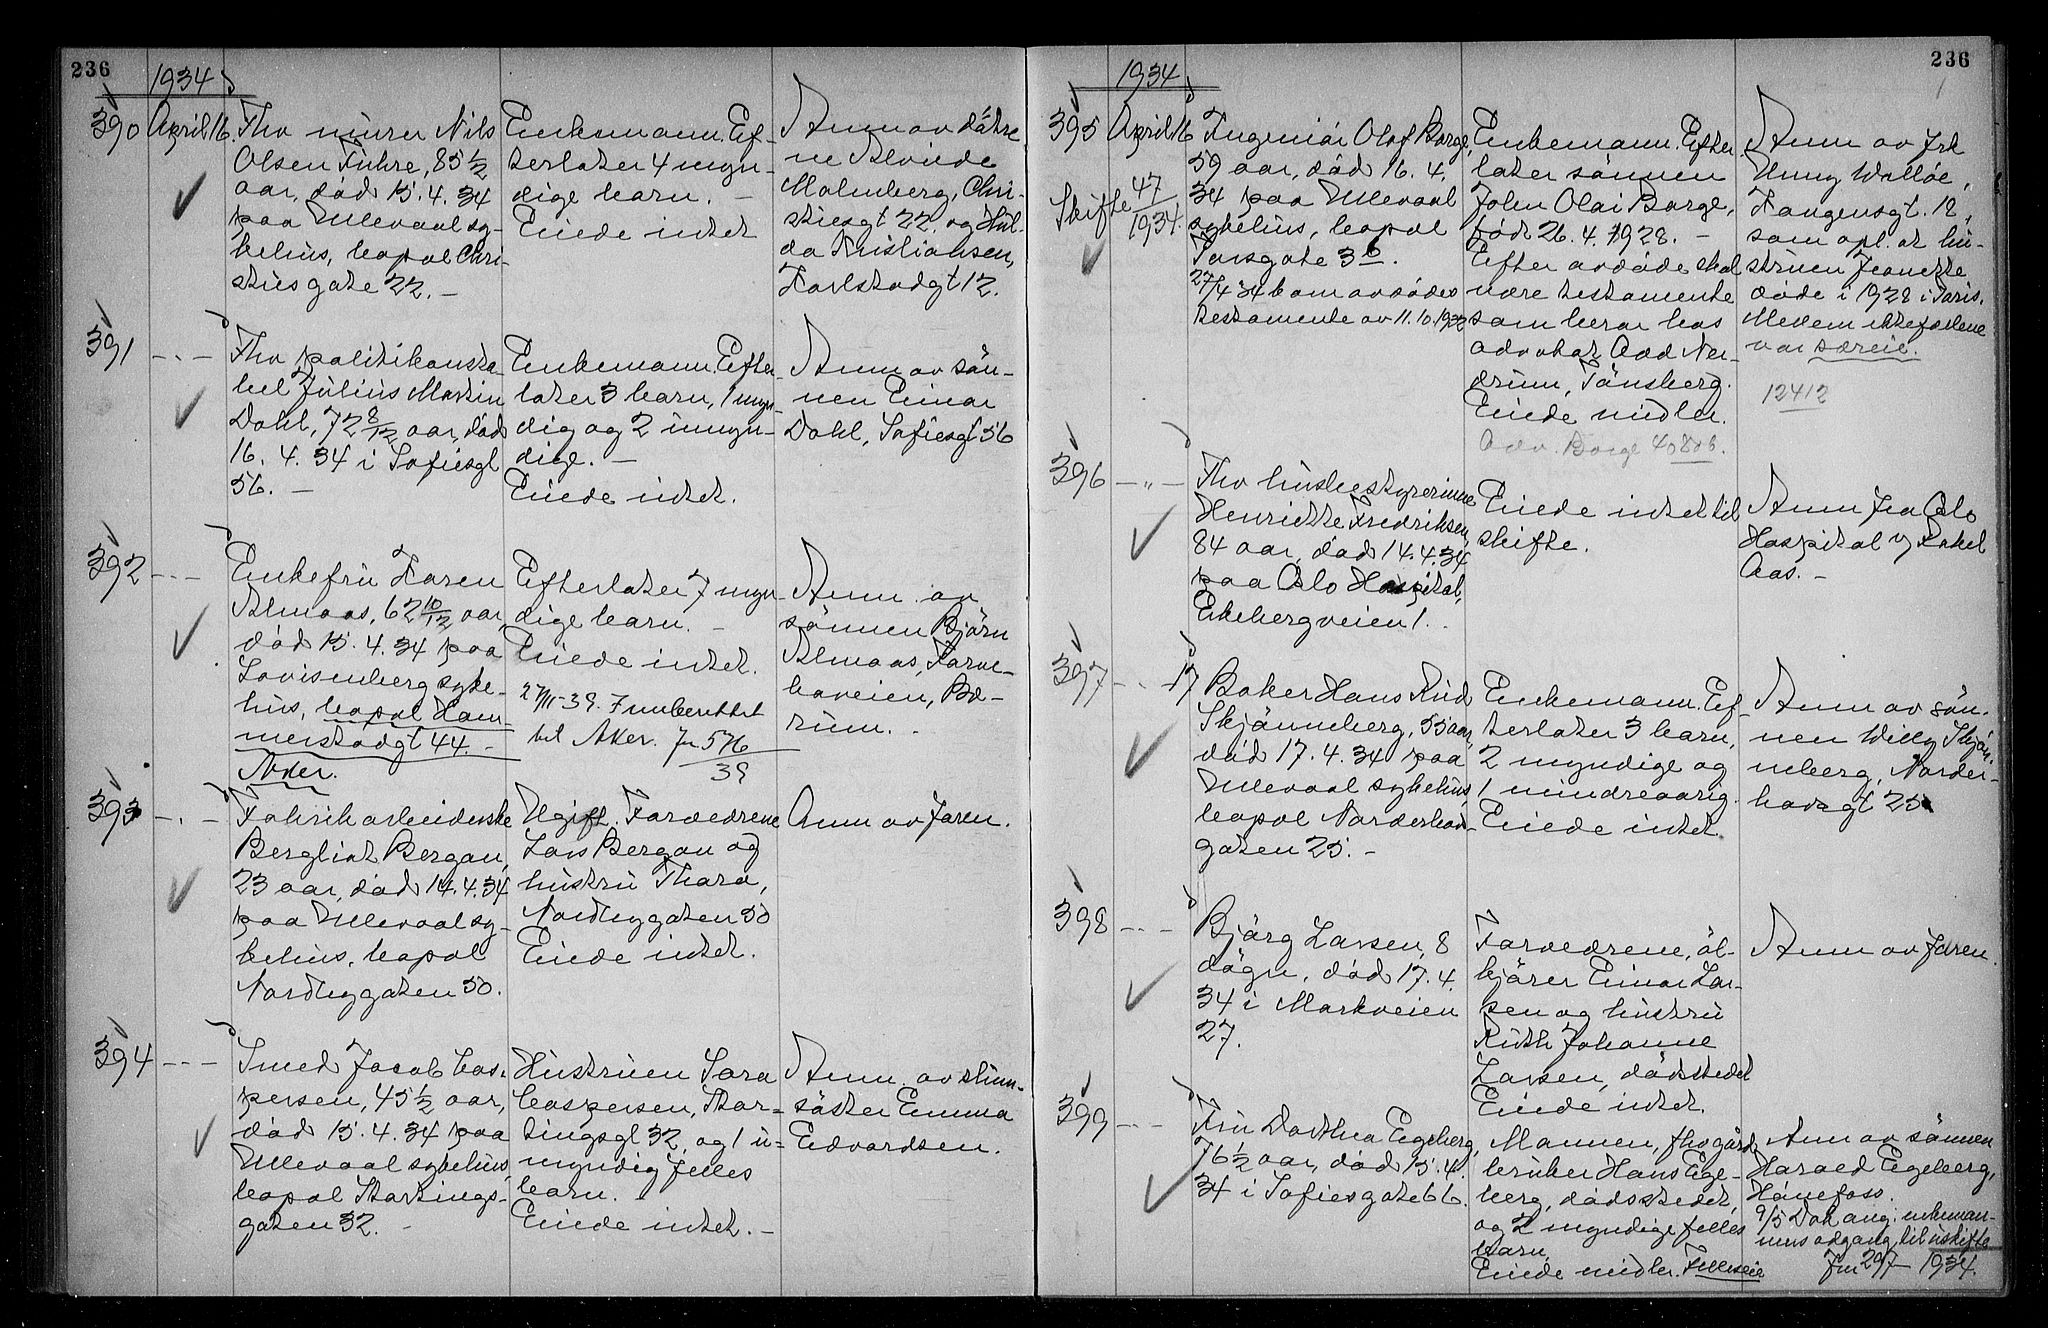 236
1934
390 April 16.
Fhv murer Nils
Olsen Furre, 85 1/2
aar, död 15.4.34
paa Ullevaal sy-
kehus, bopel Chri-
stiesgate 22. –
Enkemann. Ef-
terlater 4 myn-
dige barn. –
Eiede intet
Anm av datre
ne Alvilde
Malmberg, Chri-
stiesgt 22 og Hul-
da Kristiansen,
Karlstadgt 12.
391 – " –
Fhv politikonsta-
bel Julius Martin
Dahl, 72 8/12 aar, död
16. 4. 34 i Sofiesgt
56. –
Enkemann. Efter-
later 3 barn, 1 myn-
dig og 2 umyn-
dige. –
Eiede intet.
Anm av sön-
nen Einar
Dahl, Sofiesgt 56
392 – " –
Enkefru Karen
Almaas, 62 10/12 aar,
död 15. 4. 34 paa
Lovisenberg syke-
hus, bopel Ham-
merstadgt 44. –
Aker.
Efterlater 7 myn-
dige barn. –
Eiede intet.
27/11-39. Innberettet
til Aker. Jn 576/39
Anm. av
sönnen Björn
Almaas,
haveien, Bæ-
rum. –
393 – " –
Fabrikarbeiderske
Bergliot Bergan,
23 aar, död 14.4.34
paa Ullevaal sy-
kehus, bopel
Nordbygaten 50.
Ugift. Forældrene
Lars Bergan og
hustru Thora,
Nordbygaten 50
Eiede intet.
Anm av faren.
394 – " –
Smed Jacob Cas-
persen, 45 1/2 aar,
död 15.4.34 paa
Ullevaal sykehus,
bopel Stortings-
gaten 32. –
Hustruen Sara
Caspersen, Stor-
tingsgt 32 og 1 u-
myndig felles
barn.
Eiede intet. –
Anm. av stum-
söster Emma
Edvardsen.
236
1934
395 April 16
Skifte 47/1934.
Ingeniör Olaf Borge,
59 aar, död 16. 4.
34 paa Ullevaal
sykehus, bopel
Torsgate 3 b.
27/4 34 kom avdödes
testamente av 11.10.1932
Enkemann. Efter-
later sönnen
John Olai Borge,
född 26. 4. 1928. –
Efter avdöde skal
være testamente
som beror hos
advokat Odd Ner-
drum, Tönsberg.
Eiede midler.
Adv. Borge 40808.
Anm av frk
Henny Walløe,
Langensgt. 12,
som opl. at hu-
struen Jeanette
døde i 1928 i Paris.
var særeie.
12412
396 – " –
Fhv husbestyrerinne
Henriette Fredriksen,
84 aar, död 14.4.34
paa Oslo Hospital,
Ekebergveien 1.
Eiede intet til
skifte.
Anm fra Oslo
Hospital v/ Rakel
Aas. –
397 – " – 17
Baker Hans Rud
Skjönneberg, 55 aar,
död 17. 4. 34 paa
Ullevaal sykehus,
bopel Norderhov-
gaten 25. –
Enkemann. Ef-
terlater 3 barn,
2 myndige og
1 mindreaarig.
Eiede intet
Anm av sön-
nen Willy Skjön-
neberg, Norder-
hovsgt 25
398 – " –
Björg Larsen, 8
dögn, död 17. 4.
34 i Markveien
27.
Forældrene, öl-
kjörer Einar Lar-
sen og hustru
Ruth Johanne
Larsen, dödsstedet
Eiede intet.
Anm av faren.
399 – " –
Fru Dorthea Egeberg,
76 1/2 aar, död 15. 4.
34 i Sofiesgate 66.
Mannen, fhv gård-
bruker Hans Ege-
berg, dödsstedet,
og 2 myndige felles
barn.
Eiede midler. Felleseie
Anm av sönnen
Harald Egeberg,
Hönefoss.
9/5 Dok ang. enkeman-
nens adgang til uskifte
Jnr 297 1934.